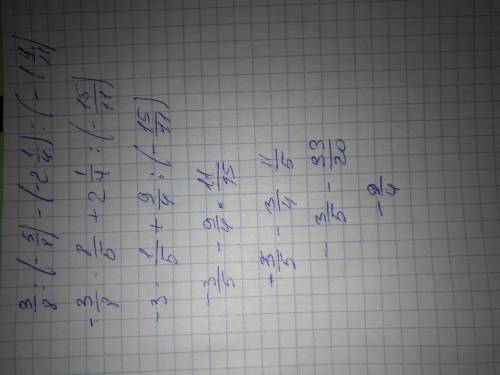 3/8 : (-5/8) - (-2 1/4) : (-1 4/11)
-3/8 · 8/5 + 2 1/4 : (-15/11)
-3 · 1/5 + 9/4 : (-15/11)
-3/5 - 9/4 · 11/15
-3/5 - 3/4 11/5
- 3/5 - 33/20
-9/4